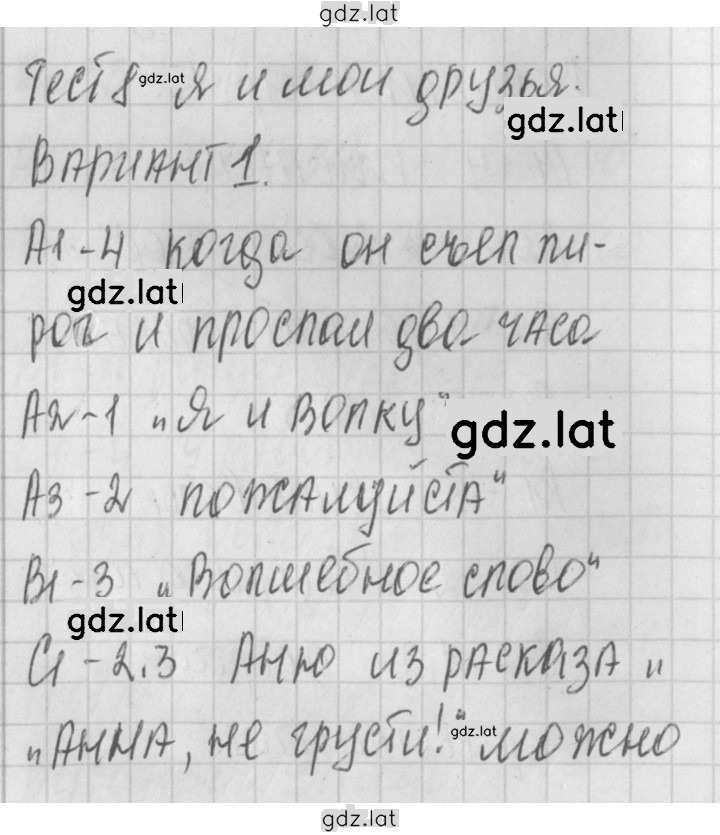 gdz.lat
Тест 8 gdz.lat я и мои друзья.
gdz.lat
Вариант 1.
А1-4 когда он съел пи-
gdz.lat
рог и проспал два часа
А2-1 „Я и Вовку“
gdz.lat
А3-2 пожалуйста“
В1-3 „Волшебное слово“
gdz.lat
С1-2.3 Анно из расказа „
„Анна, не грусти!“ gdz.lat можно
gdz.lat